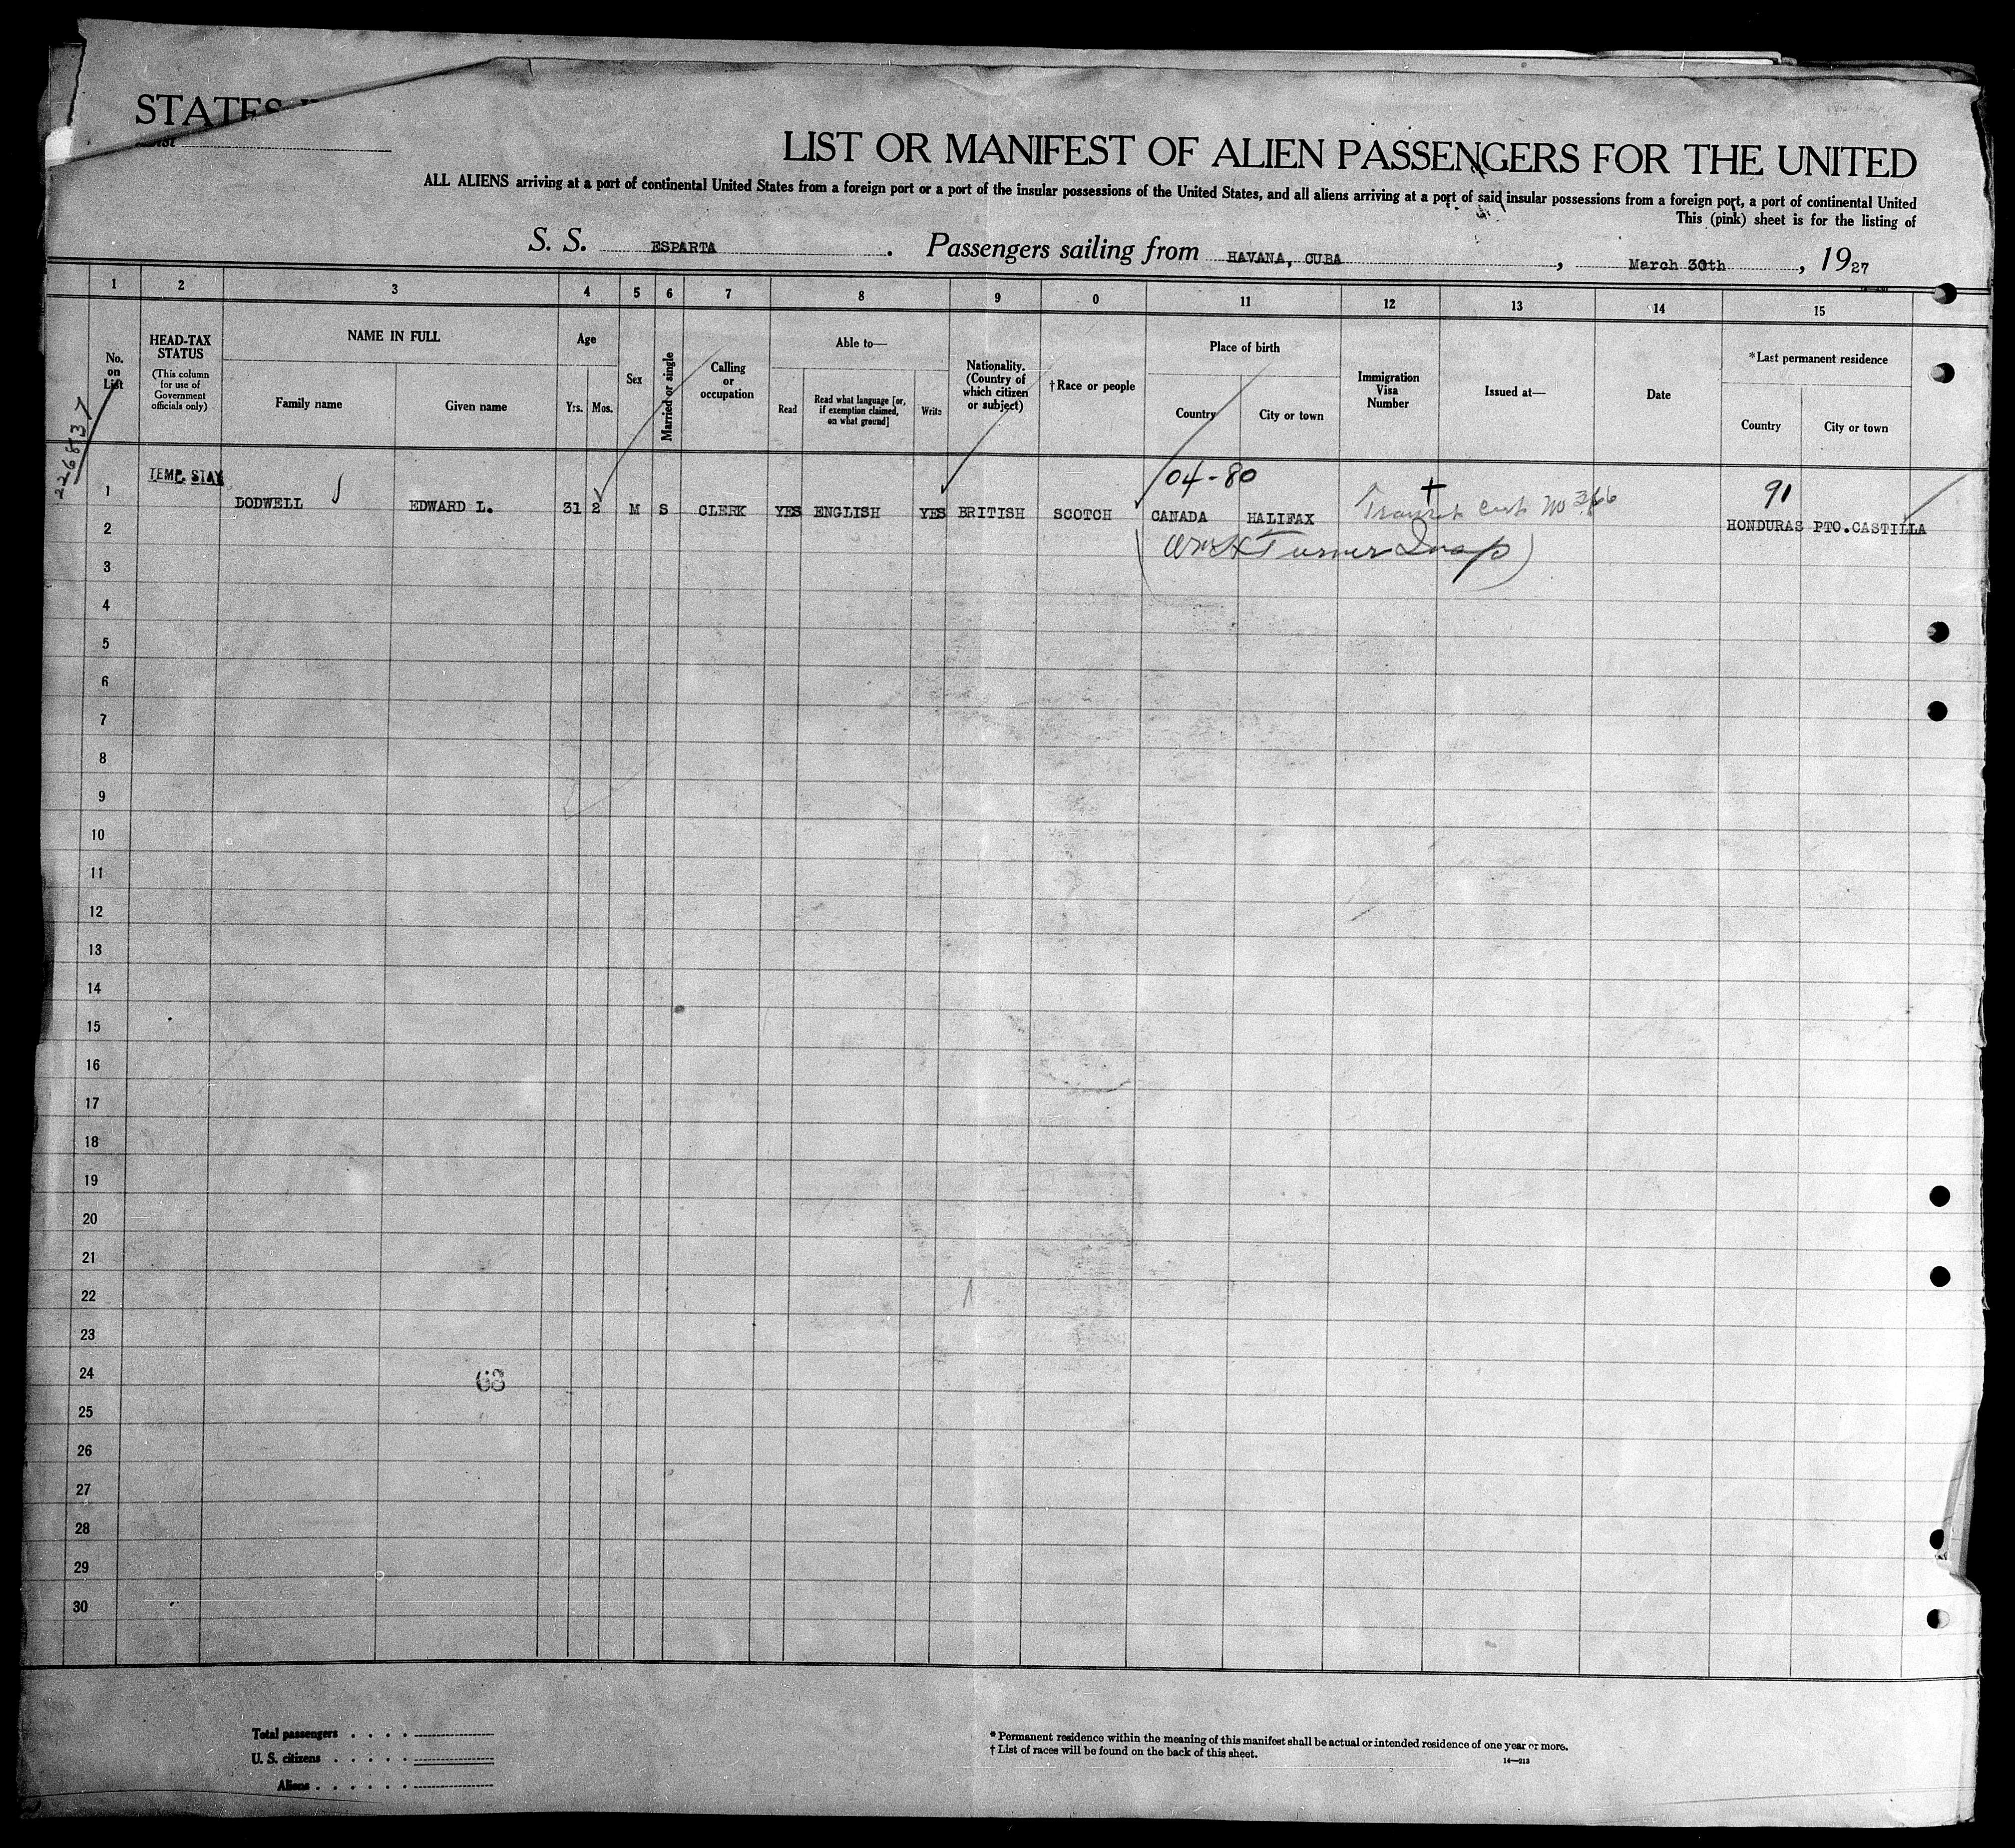 STATES
LIST OR MANIFEST OF ALIEN PASSENGERS FOR THE UNITED
ALL ALIENS arriving at a port of continental United States from a foreign port or a port of the insular possessions of the United States, and all aliens arriving at a port of said insular possessions from a foreign port, a port of continental United
This (pink) sheet is for the listing of
S. S. ESPARTA . Passengers sailing from HAVANA, CUBA , March 30th , 1927
1 2 3 4 5 6 7 8 9 0 11 12 13 14 15
No. on List
HEAD-TAX STATUS
(This column for use of Government officials only)
NAME IN FULL
Family name
Given name
Age
Yrs. Mos.
Sex
Married or single
Calling or occupation
Able to—
Read
Read what language [or, if exemption claimed, on what ground]
Write
Nationality. (Country of which citizen or subject)
†Race or people
Place of birth
Country
City or town
Immigration Visa Number
Issued at—
Date
*Last permanent residence
Country
City or town
226837
TEMP. STAY
04-80
91
1 DODWELL EDWARD L. 31 2 M S CLERK YES ENGLISH YES BRITISH SCOTCH CANADA HALIFAX Transit cert no 366 HONDURAS PTO.CASTILLA
2
(Wm H Turner Insp)
3
4
5
6
7
8
9
10
11
12
13
14
15
16
17
18
19
20
21
22
23
24
68
25
26
27
28
29
30
Total passengers . . . .
U. S. citizens . . . . .
Aliens . . . . . .
* Permanent residence within the meaning of this manifest shall be actual or intended residence of one year or more.
† List of races will be found on the back of this sheet.
14—213